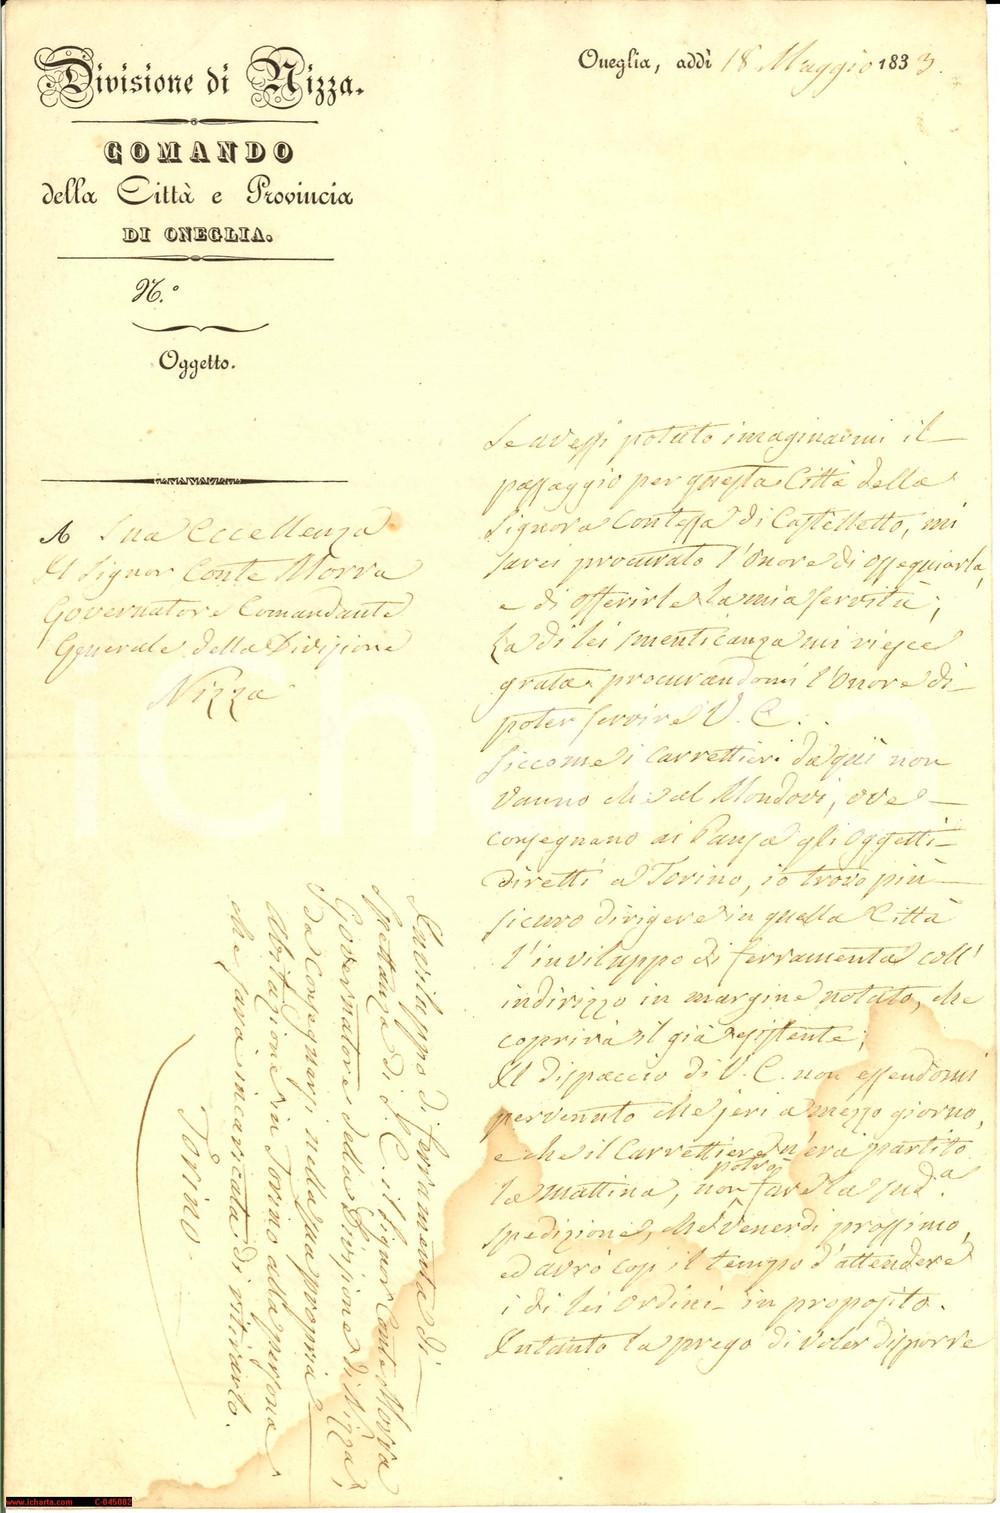 Divisione di Nizza.
COMANDO
della Città e Provincia
DI ONEGLIA.
N.°
Oggetto.
Oneglia, addì 18 Maggio 1833.
A Sua Eccellenza
Il Signor Conte Morra
Governatore Comandante
Generale della Divisione
Nizza
Se avessi potuto imaginarmi il
passaggio per questa Città della
Signora Contessa di Castelletto, mi
sarei procurato l'Onore di ossequiarla,
e di offerirle la mia servitù;
La di lei smenticanza mi riesce
grata procurandomi l'Onore di
poter servire V. E. . .
Siccome i Carrettieri da quì non
vanno che al Mondovì, ove
consegnano ai Pansa gli Oggetti
diretti a Torino, io trovo più
sicuro dirigere in quella Città
l'inviluppo di ferramenta coll'
indirizzo in margine notato, che
coprirà il già esistente;
Il dispaccio di V. E. non essendomi
pervenuto che jeri a mezzo giorno,
e che il Carrettiere n'era partito
la mattina, non potrò fare la sud.a
spedizione, che Venerdì prossimo,
ed avrò così il tempo d'attendere
i di lei Ordini in proposito.
Intanto la prego di voler disporre
Inviluppo di ferramenta di
spettanza di S. E. il Signor Conte Morra
Governatore della Divisione di Nizza,
da consegnarsi nella sua propria
abitazione in Torino alla persona
che sarà incaricata di ritirarlo.
Torino
www.icharta.com C-045082